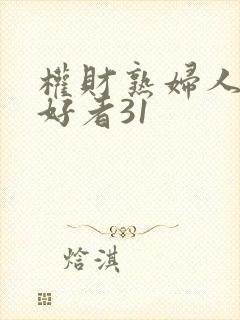 權財熟婦人
好者31
焓淇